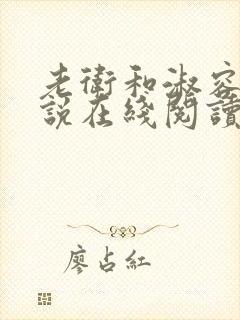 老衛和淑容
說在綫閱讀
廖占紅